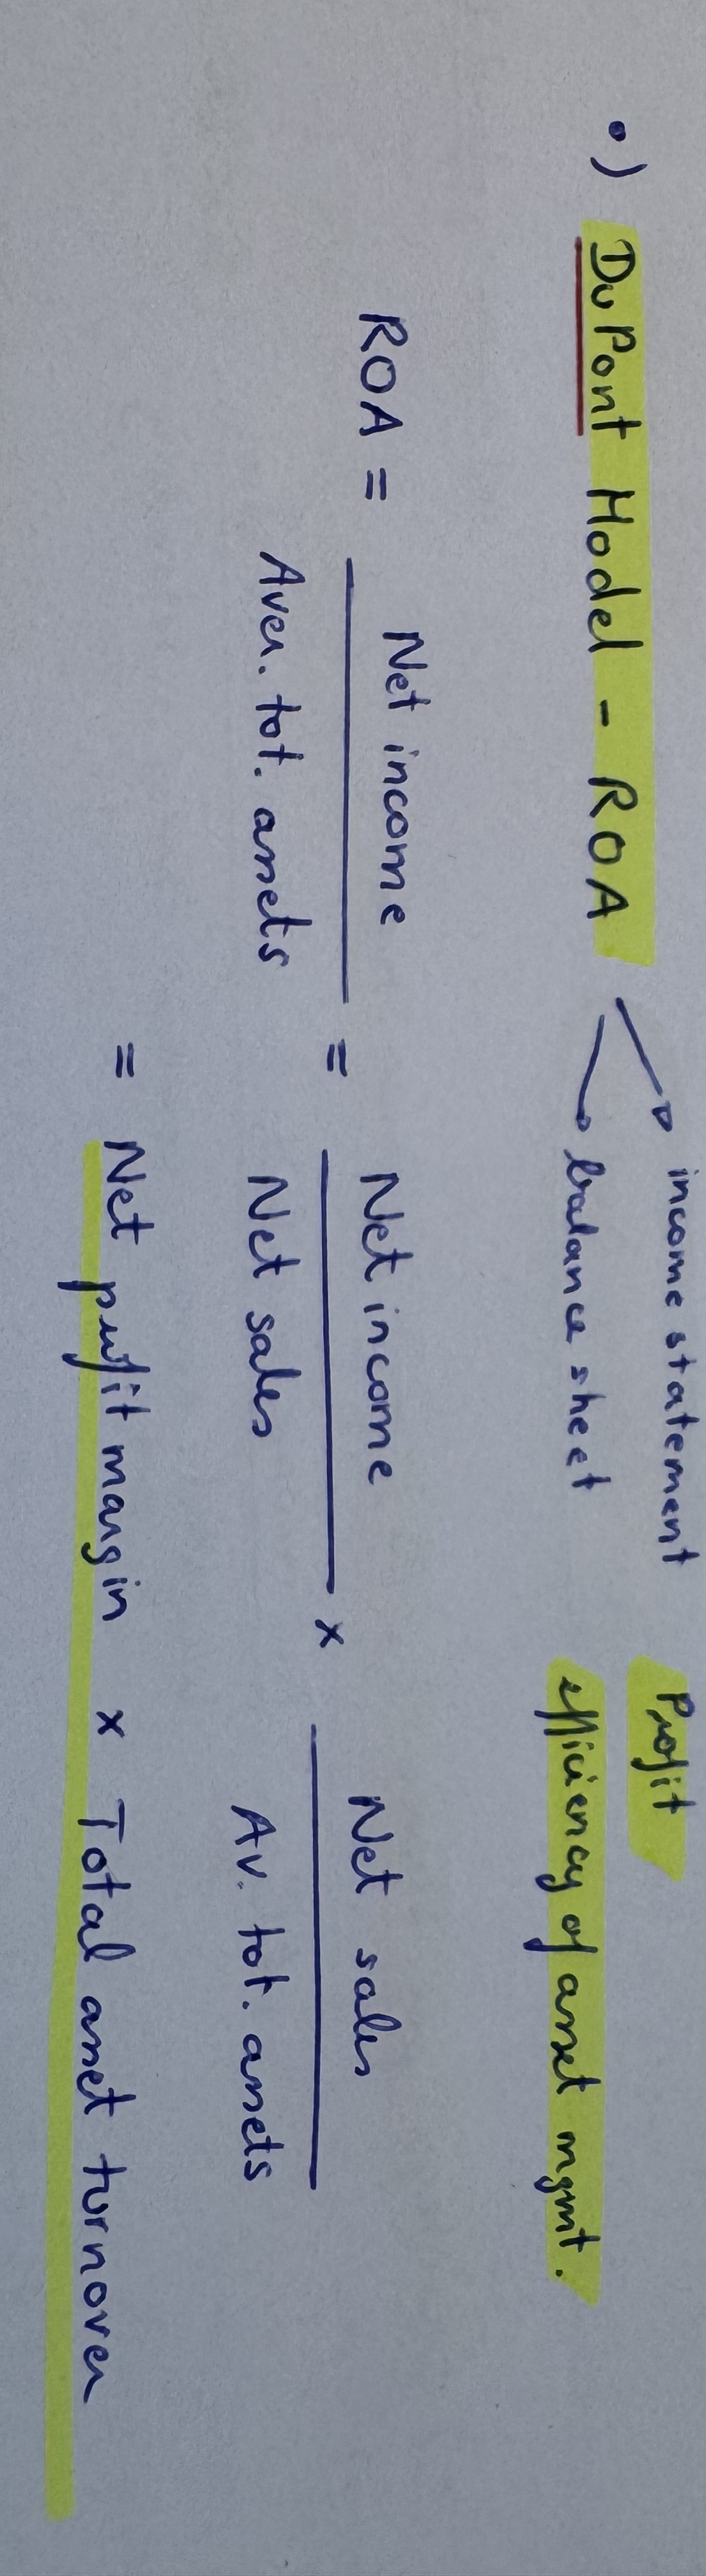 •) DuPont Model - ROA → income statement Profit
→ balance sheet efficiency of asset mgmt.
ROA = Net income / Aver. tot. assets = Net income / Net sales x Net sales / Av. tot. assets
= Net profit margin x Total asset turnover